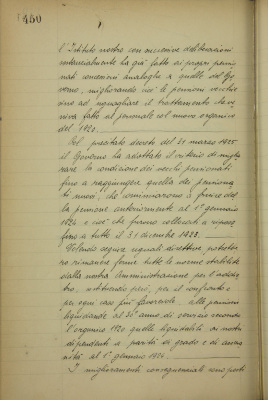 450
l'Istituto nostro con successive deliberazioni
sostanzialmente ha già fatto ai propri pensio
nati concessioni analoghe a quelle del Go
verno, migliorando cioè le pensioni vecchie
sino ad eguagliare il trattamento che ve
niva fatto al personale col nuovo organico
del 1920.
Col precitato decreto del 31 marzo 1925
il Governo ha adottato il criterio di miglio
rare la condizione dei vecchi pensionati
fino a raggiungere quella dei pensiona
ti nuovi, che cominciarono a fruire del
la pensione anteriormente al 1° gennaio
1924 e cioè che furono collocati a riposo
fino a tutto il 31 dicembre 1923.
Volendo seguire eguali direttive, potrebbe
ro rimanere ferme tutte le norme stabilite
dalla nostra Amministrazione per l'addie
tro, istituendo però, per il confronto e
per ogni caso più favorevole alle pensioni
liquidande al 30° anno di servizio secondo
l'organico 1920 quelle liquidabili ai nostri
dipendenti a parità di grado e di anzia
nità al 1° gennaio 1924.
I miglioramenti conseguenziali